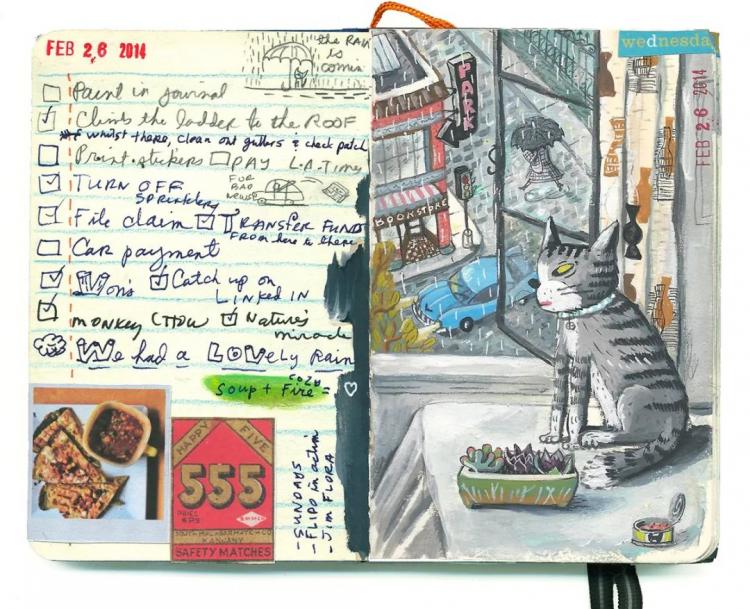 FEB 26 2014
the RAIN
is
comin
Paint in journal
Climb the ladder to the ROOF
* whilst there, clean out gutters & check patch
Print stickers PAY L.A. Times
FOR
BAD
NEWS
TURN OFF
SPRINKLERS
File claim TRANSFER FUNDS
FROM here to there
Car payment
Von's Catch up on
LINKED IN
MONKEY CHOW Nature's
miracle
We had a LOVely Rain
Soup + Fire = cozy
HAPPY FIVE
555
SAFETY MATCHES
- SUNDAYS
- FLIPO in action
- JIM FLORA
wednesda
FEB 26 2014
PARK
BOOKSTORE